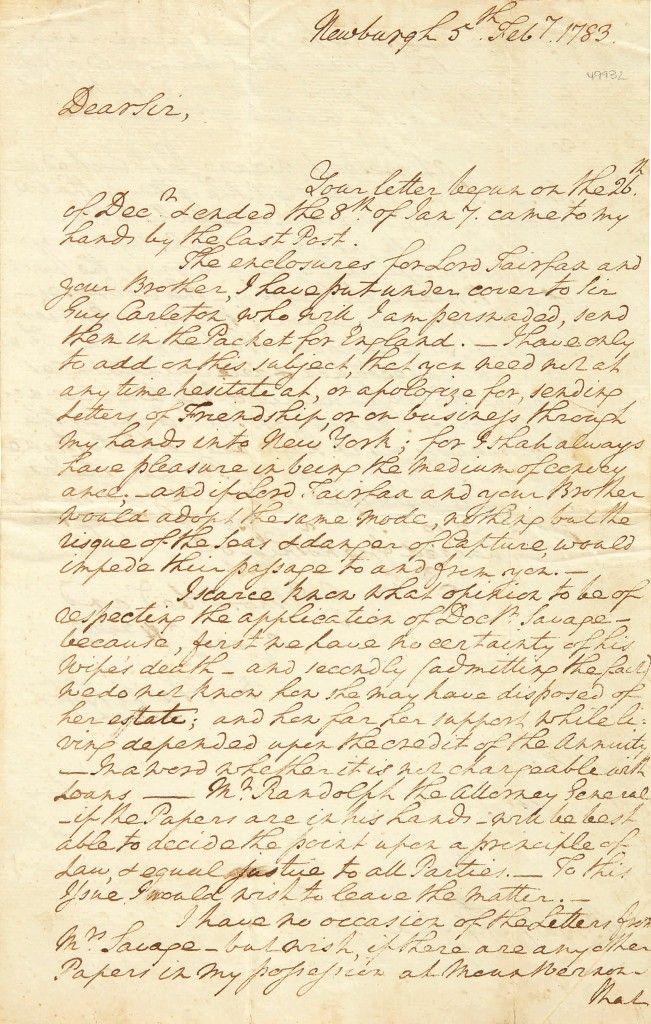 Newburgh 5th Feby. 1783.
49932
Dear Sir,
Your letter begun on the 26th
of Decr. & ended the 8th of Jany. came to my
hands by the last Post.
The enclosures for Lord Fairfax and
your Brother, I have put under cover to Sir
Guy Carleton, who will I am persuaded, send
them in the Packet for England. — I have only
to add on this subject, that you need not at
any time hesitate at, or apologize for, sending
Letters of Friendship, or on business through
my hands into New York; for I shall always
have pleasure in being the medium of convey
ance; — and if Lord Fairfax and your Brother
would adopt the same mode, nothing but the
risque of the Seas & danger of Capture, would
impede their passage to and from you. —
I scarce know what opinion to be of
respecting the application of Doctr. Savage —
because, first we have no certainty of his
Wife's death — and secondly (admitting the fact)
we do not know how she may have disposed of
her estate; and how far her support while li-
ving depended upon the credit of the Annuity
— In a word whether it is not chargeable with
Loans — Mr. Randolph the Attorney General
— if the Papers are in his hands — will be best
able to decide the point upon a principle of
Law, & equal justice to all Parties. — To this
Issue I would wish to leave the matter. —
I have no occasion of the Letters from
Mrs. Savage — but wish, if there are any other
Papers in my possession at Mount Vernon
that